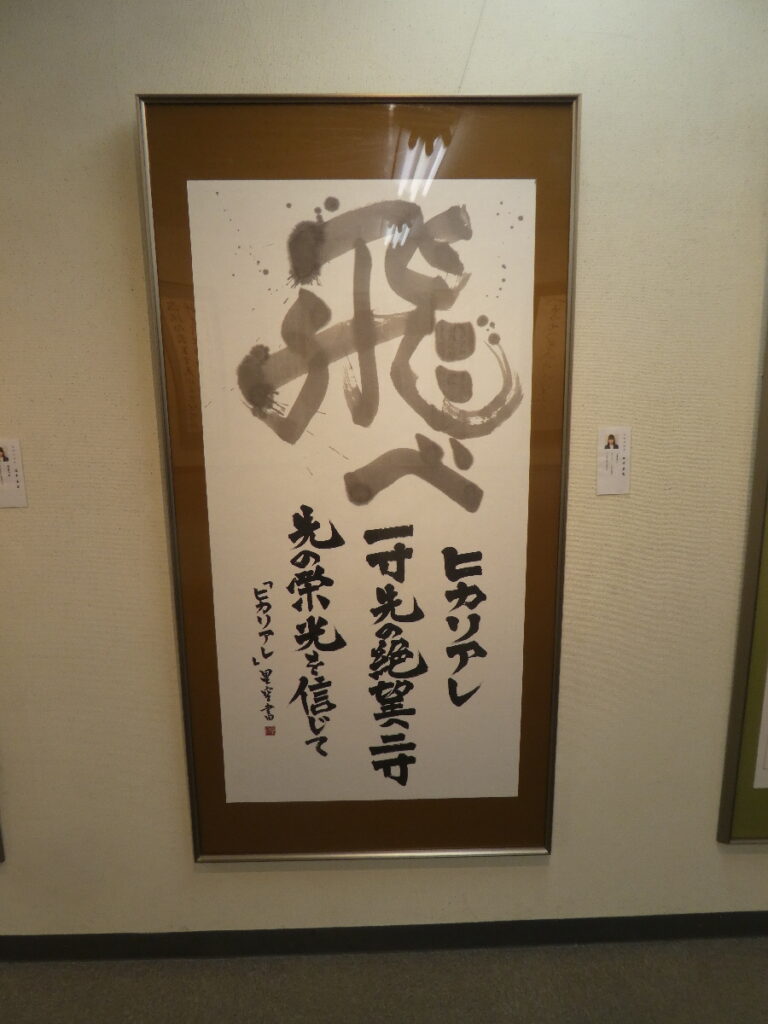 飛べ
ヒカリアレ
一寸先の絶望へ二寸
先の栄光を信じて
「ヒカリアレ」里空書